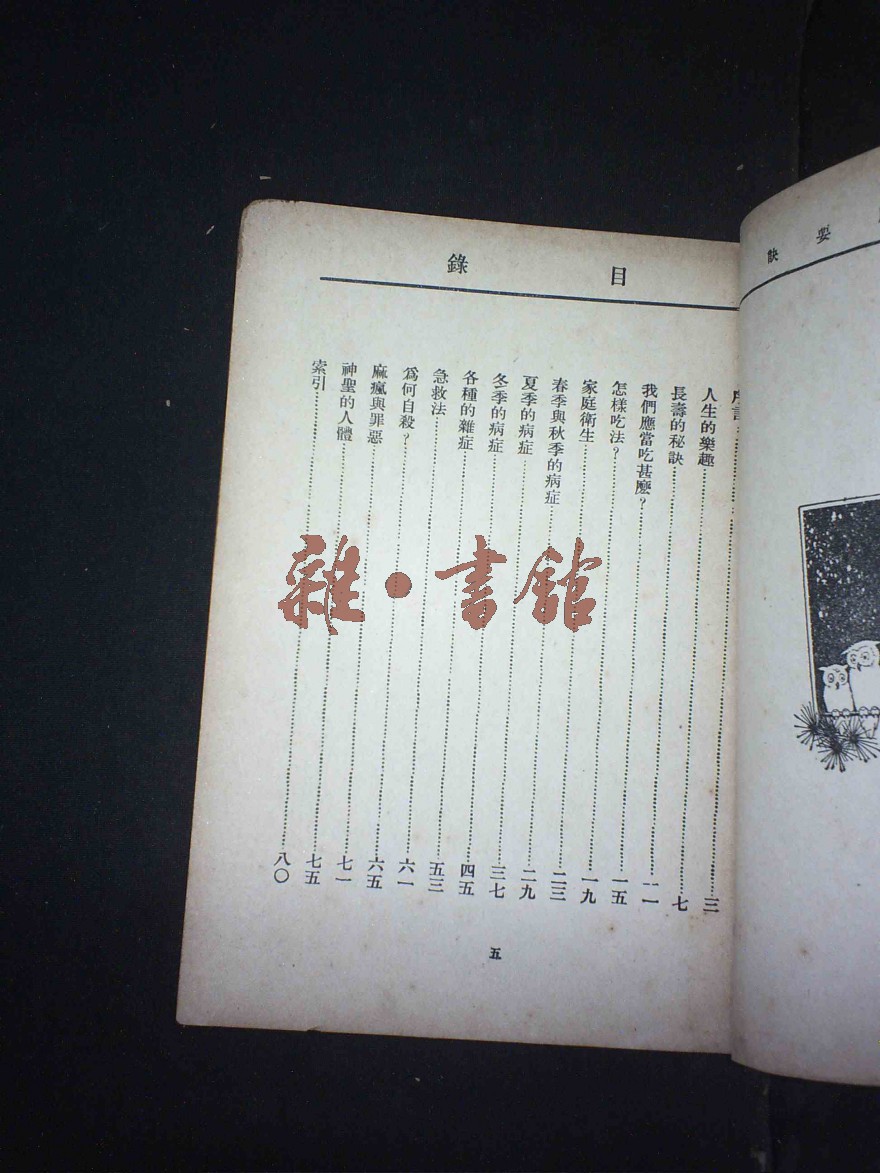 要訣
目錄
序言……三
人生的樂趣……七
長壽的秘訣……一一
我們應當吃甚麽？……一五
怎樣吃法？……一九
家庭衛生……二三
春季與秋季的病症……二九
夏季的病症……三七
冬季的病症……四五
各種的雜症……五三
急救法……六一
爲何自殺？……六五
麻瘋與罪惡……七一
神聖的人體……七五
索引……八〇
五
雜·書館